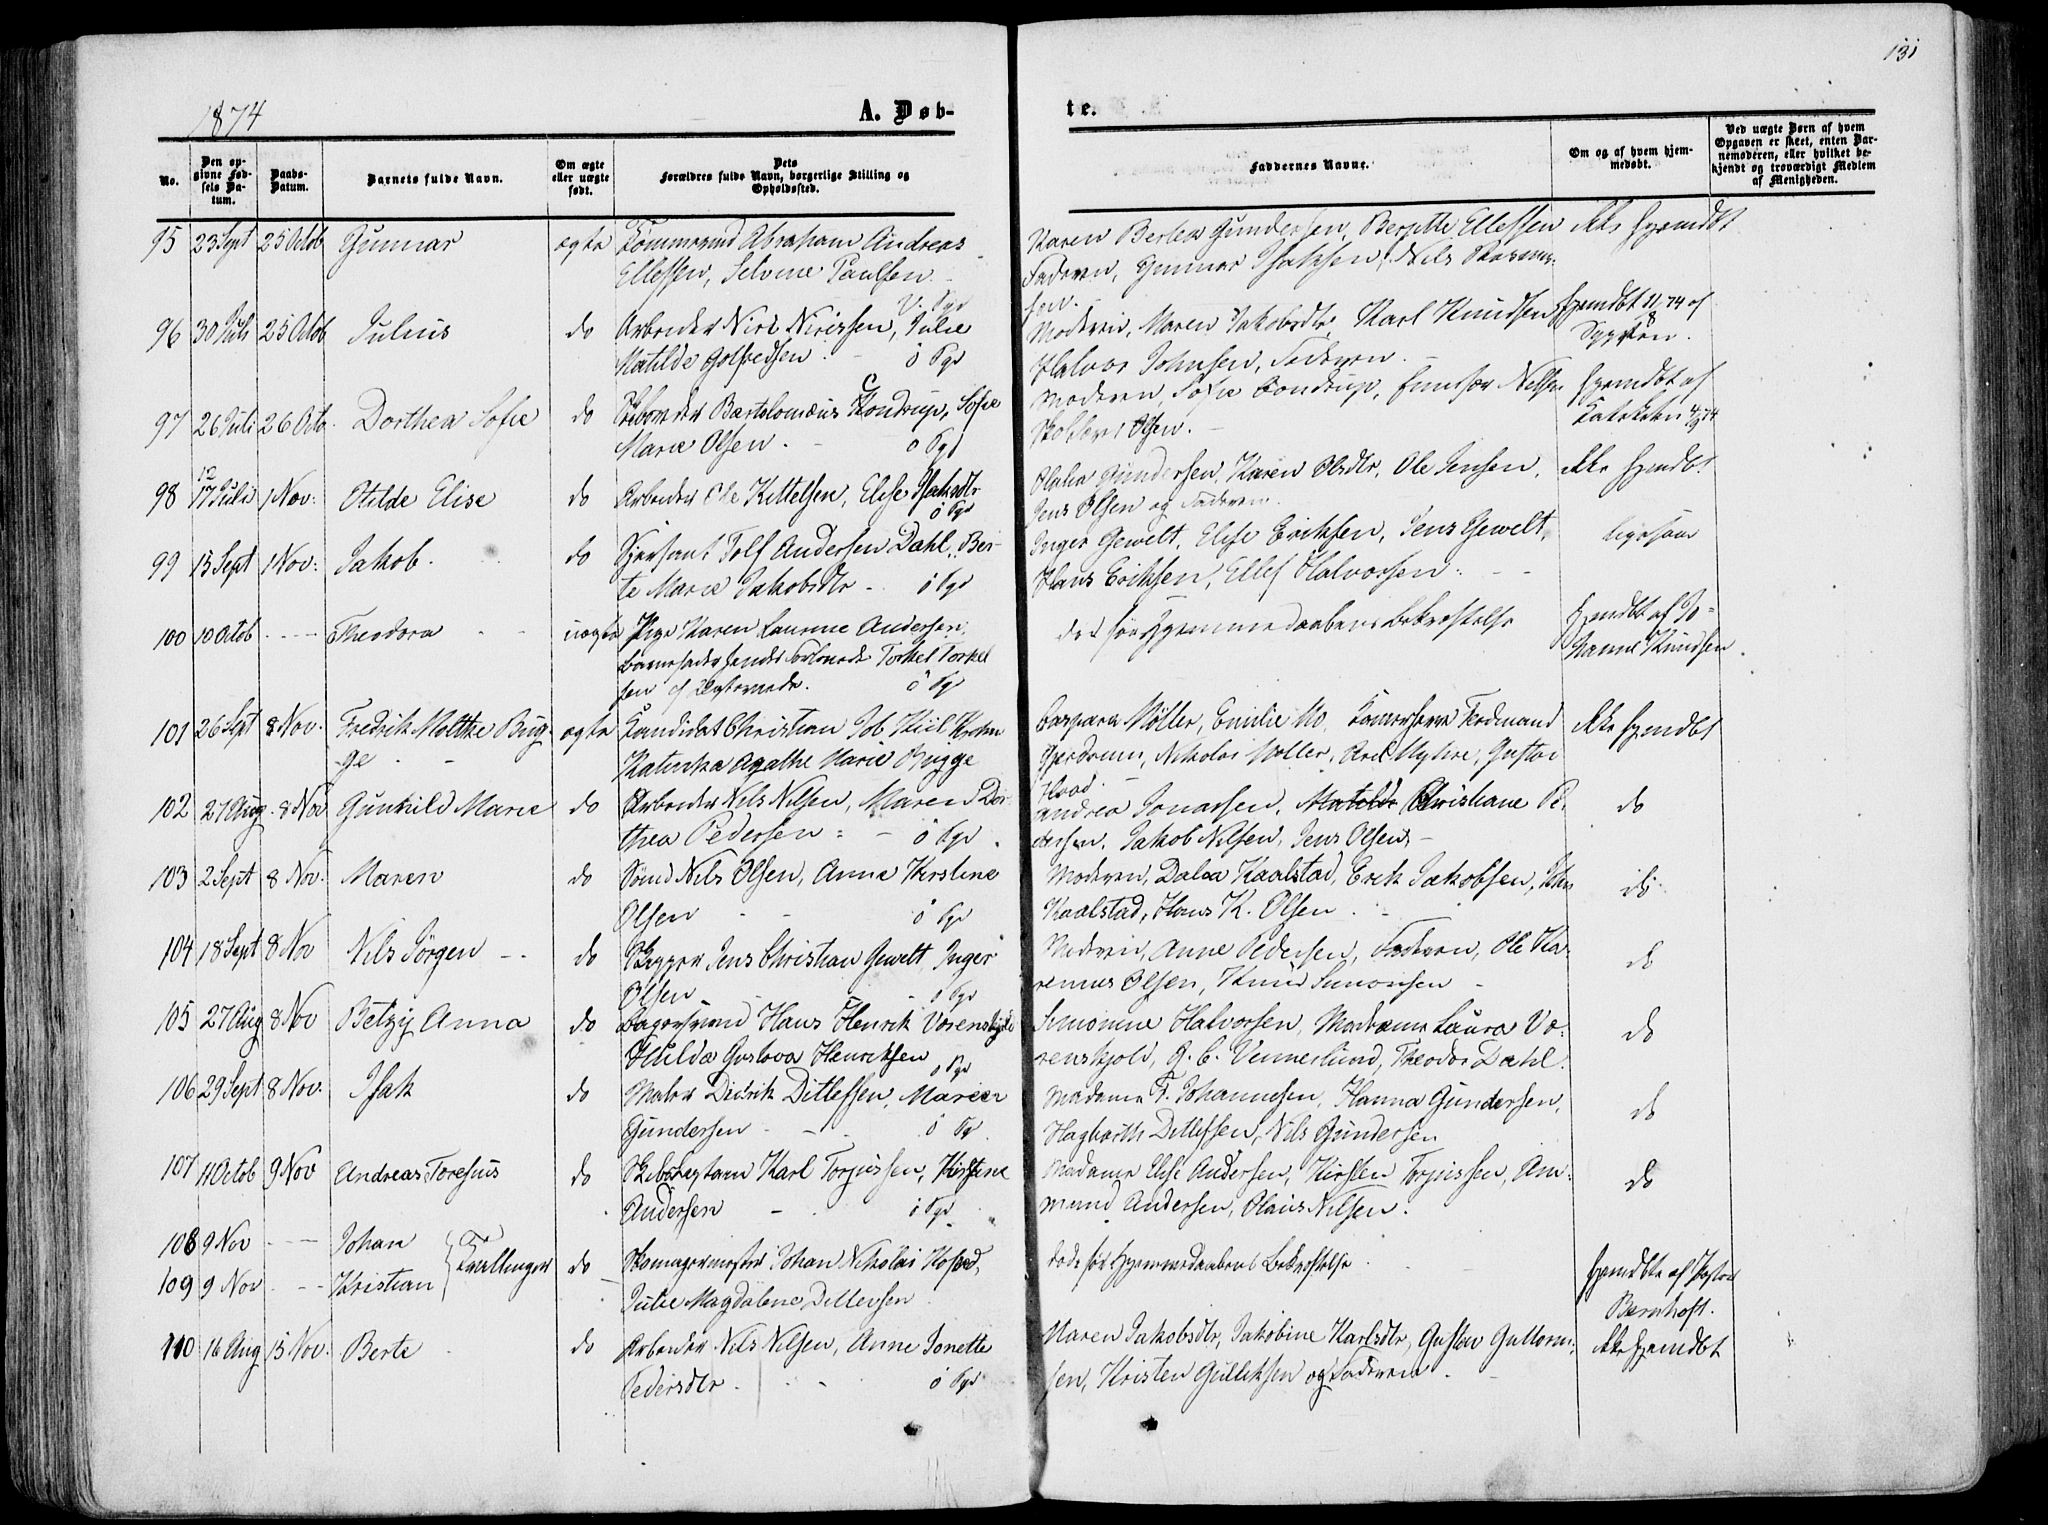 131
1874
A. Døb-
te.
No.
Den op-
givne Fød-
sels Da-
tum.
Daabs-
Datum.
Barnets fulde Navn.
Om ægte
eller uægte
født.
Dets
Forældres fulde Navn, borgerlige Stilling og
Opholdssted.
Faddernes Navne.
Om og af hvem hjem-
medøbt.
Ved uægte Børn af hvem
Opgaven er skeet, enten Bar-
nemoderen, eller hvilket be-
kjendt og troværdigt Medlem
af Menigheden.
95 23 Sept 25 Octob Gunnar ægte Tømmermd Abraham Andreas
Ellefsen, Selvine Paulsen
V. Pgr
Karen Gundersen, Ellefsen
Faderen, Gunnar Isaksen, Nils Rasmus-
sen.
ikke hjemdbt
96 30 Juli 25 Octob Julius do Arbeider Nirs Nirissen, Julie
Matilde Golfredsen. ö Pgr
Moderen, Maren Jakobsdtr, Karl Knudsen
Halvor Johnsen, Faderen.
hjemdbt 11/8 74 af
97 26 Juli 26 Octo Dorthea Sofie do Bartolomæus Condrup, Sofie
Marie Olsen. ö Pgr
Moderen, Sofie Condrup, Nilsen
Olsen.
hjemdbt af
98 17 Juli 1 Nov: Otilde Elise do Arbeider Ole Kittelsen, Elise Isaksdtr
ö Pgr
Gundersen, Karen Olsdtr, Ole Jensen,
Jens Olsen og Faderen.
ikke hjemdbt
99 13 Sept 1 Nov: Jakob. do Sjersant Tolf Andersen Dahl, Ber-
te Marie Jakobsdtr ö Pgr
Inger Gewelt, Elise Eriksen, Jens Gewelt,
Hans Eriksen, Ellef Halvorsen.
ligesaa
100 10 Octob Theodora uægte Pige Karen Laurine Andersen,
Barnefader hendes Forlovede Torkel Torkel
sen af ö Pgr
død før Hjemmedaabens Bekræftelse
hjemdbt af Jo-
hanne Knudsen.
101 26 Sept 8 Nov. Fredrik Moltke Bug-
ge
ægte Kandidat Christian Job Kiil
Katinka Agathe Marie Bugge
Caspara Møller, Emilie Mo, Ferdinand
Gjerdrum, Nikolai Møller, Axel Myhre, Gustav
Hvad.
ikke hjemdbt
102 27 Aug. 8 Nov Gunhild Marie do Arbeider Nils Nilsen, Maren Dor-
thea Pedersen ö Pgr
Andrea Jonassen, Christiane Pe-
dersen, Jakob Nilsen, Jens Olsen
do
103 2 Sept 8 Nov. Maren do Sømd Nils Olsen, Anna Kirstine
Olsen ö Pgr
Moderen, Kaalstad, Erik Jakobsen,
Kaalstad, Hans K. Olsen.
do
104 18 Sept 8 Nov Nils Jørgen do Jens Christian Gewelt, Inger
Olsen ö Pgr
Moderen, Anne Pedersen, Faderen, Ole Ka-
renius Olsen, Knud Simonsen
do
105 27 Aug 8 Nov Betzy Anna do Bagersvend Hans Henrik Vorenskjold
Hulda Gustava Henriksen ö Pgr
Simonine Halvorsen, Madame Laura Vo-
renskjold, Vennerlund, Theodor Dahl.
do
106 29 Sept 8 Nov. Isak do Maler Didrik Ditlefsen, Maren
Gundersen ö Pgr
Madame F. Johannesen, Hanna Gundersen,
Hagbarth Ditlefsen, Nils Gundersen
do
107 11 Octob 9 Nov Andreas Toresius do Skibscaptain Karl Torjussen, Kirstine
Andersen ö Pgr
Madame Elise Andersen, Kirsten Torjussen, Am-
mund Andersen, Olaus Nilsen.
do
108 9 Nov Johan
109 9 Nov Kristian
Tvillinger do Skomagermester Johan Nikolai
Julie Magdalene Ditlevsen
døde før Hjemmedaabens Bekræftelse
hjemdbte af Pastor
Bernhoft.
110 16 Aug 15 Nov. Berte do Arbeider Nils Nilsen, Anne Jonette
Pedersdtr. ö Pgr
Maren Jakobsdtr, Jakobine Karlsdtr, Gustav Guttorm-
sen, Kristen Gulliksen og Faderen.
ikke hjemdbt